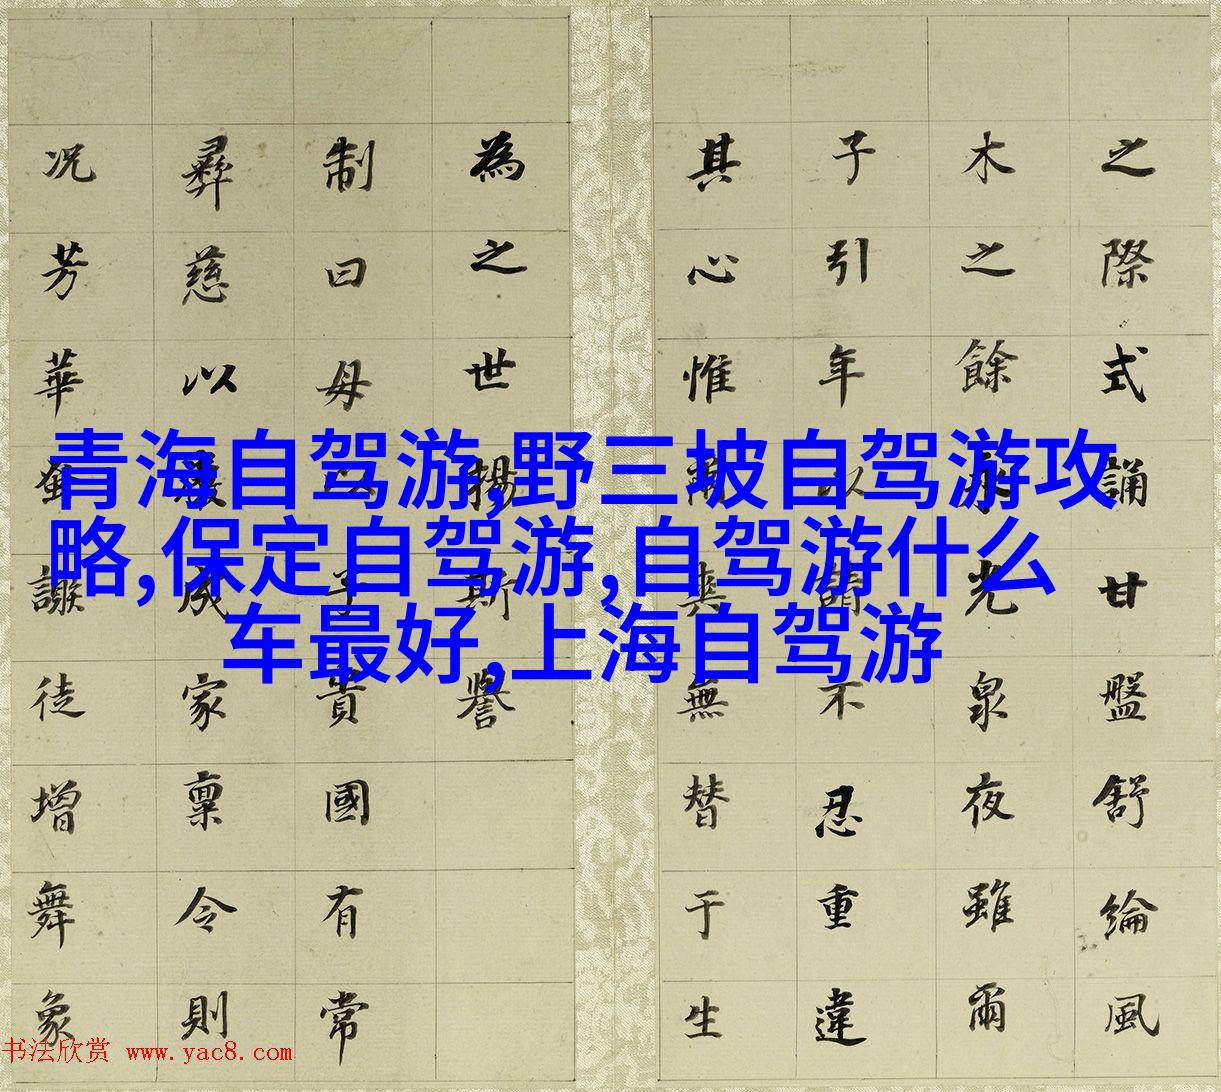 之際式誦甘盤舒綸風
木之餘永光泉夜雖爾
子引年以請不忍重違
其心惟無替于生
為之世揚斯譽
制曰母以子貴國有常
彝慈以成家稟令則
况芳華徒增舞象
青海自驾游,野三坡自驾游攻
略,保定自驾游,自驾游什么
车最好,上海自驾游
书法欣赏 www.yac8.com